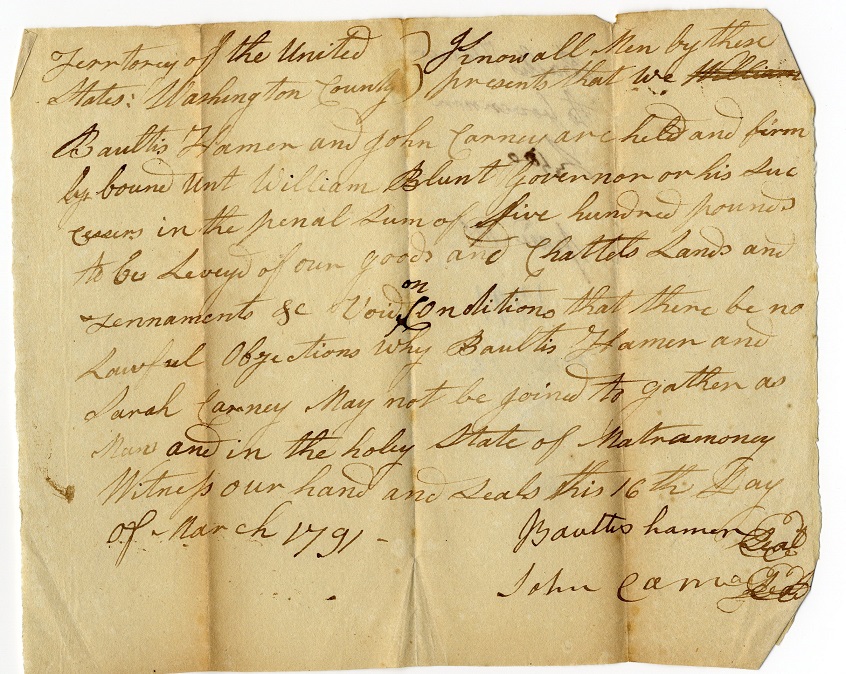 Territorey of the United } Know all Men by these
States: Washington County } presents that we William
Baultis Hamer and John Carney are held and firm
ly bound unt William Blunt Governor or his Suc
cessors in the penal Sum of five hundred pounds
to be Leveyd of our goods and Chattels Lands and
Tennaments &c Void on Conditions that there be no
Lawful Objections why Baultis Hamer and
Sarah Carney May not be joined to gather as
Man and in the holey State of Matramoney
Witness our hand and Seals this 16th Day
of March 1791 -
Baultis hamer Seal
John Seal